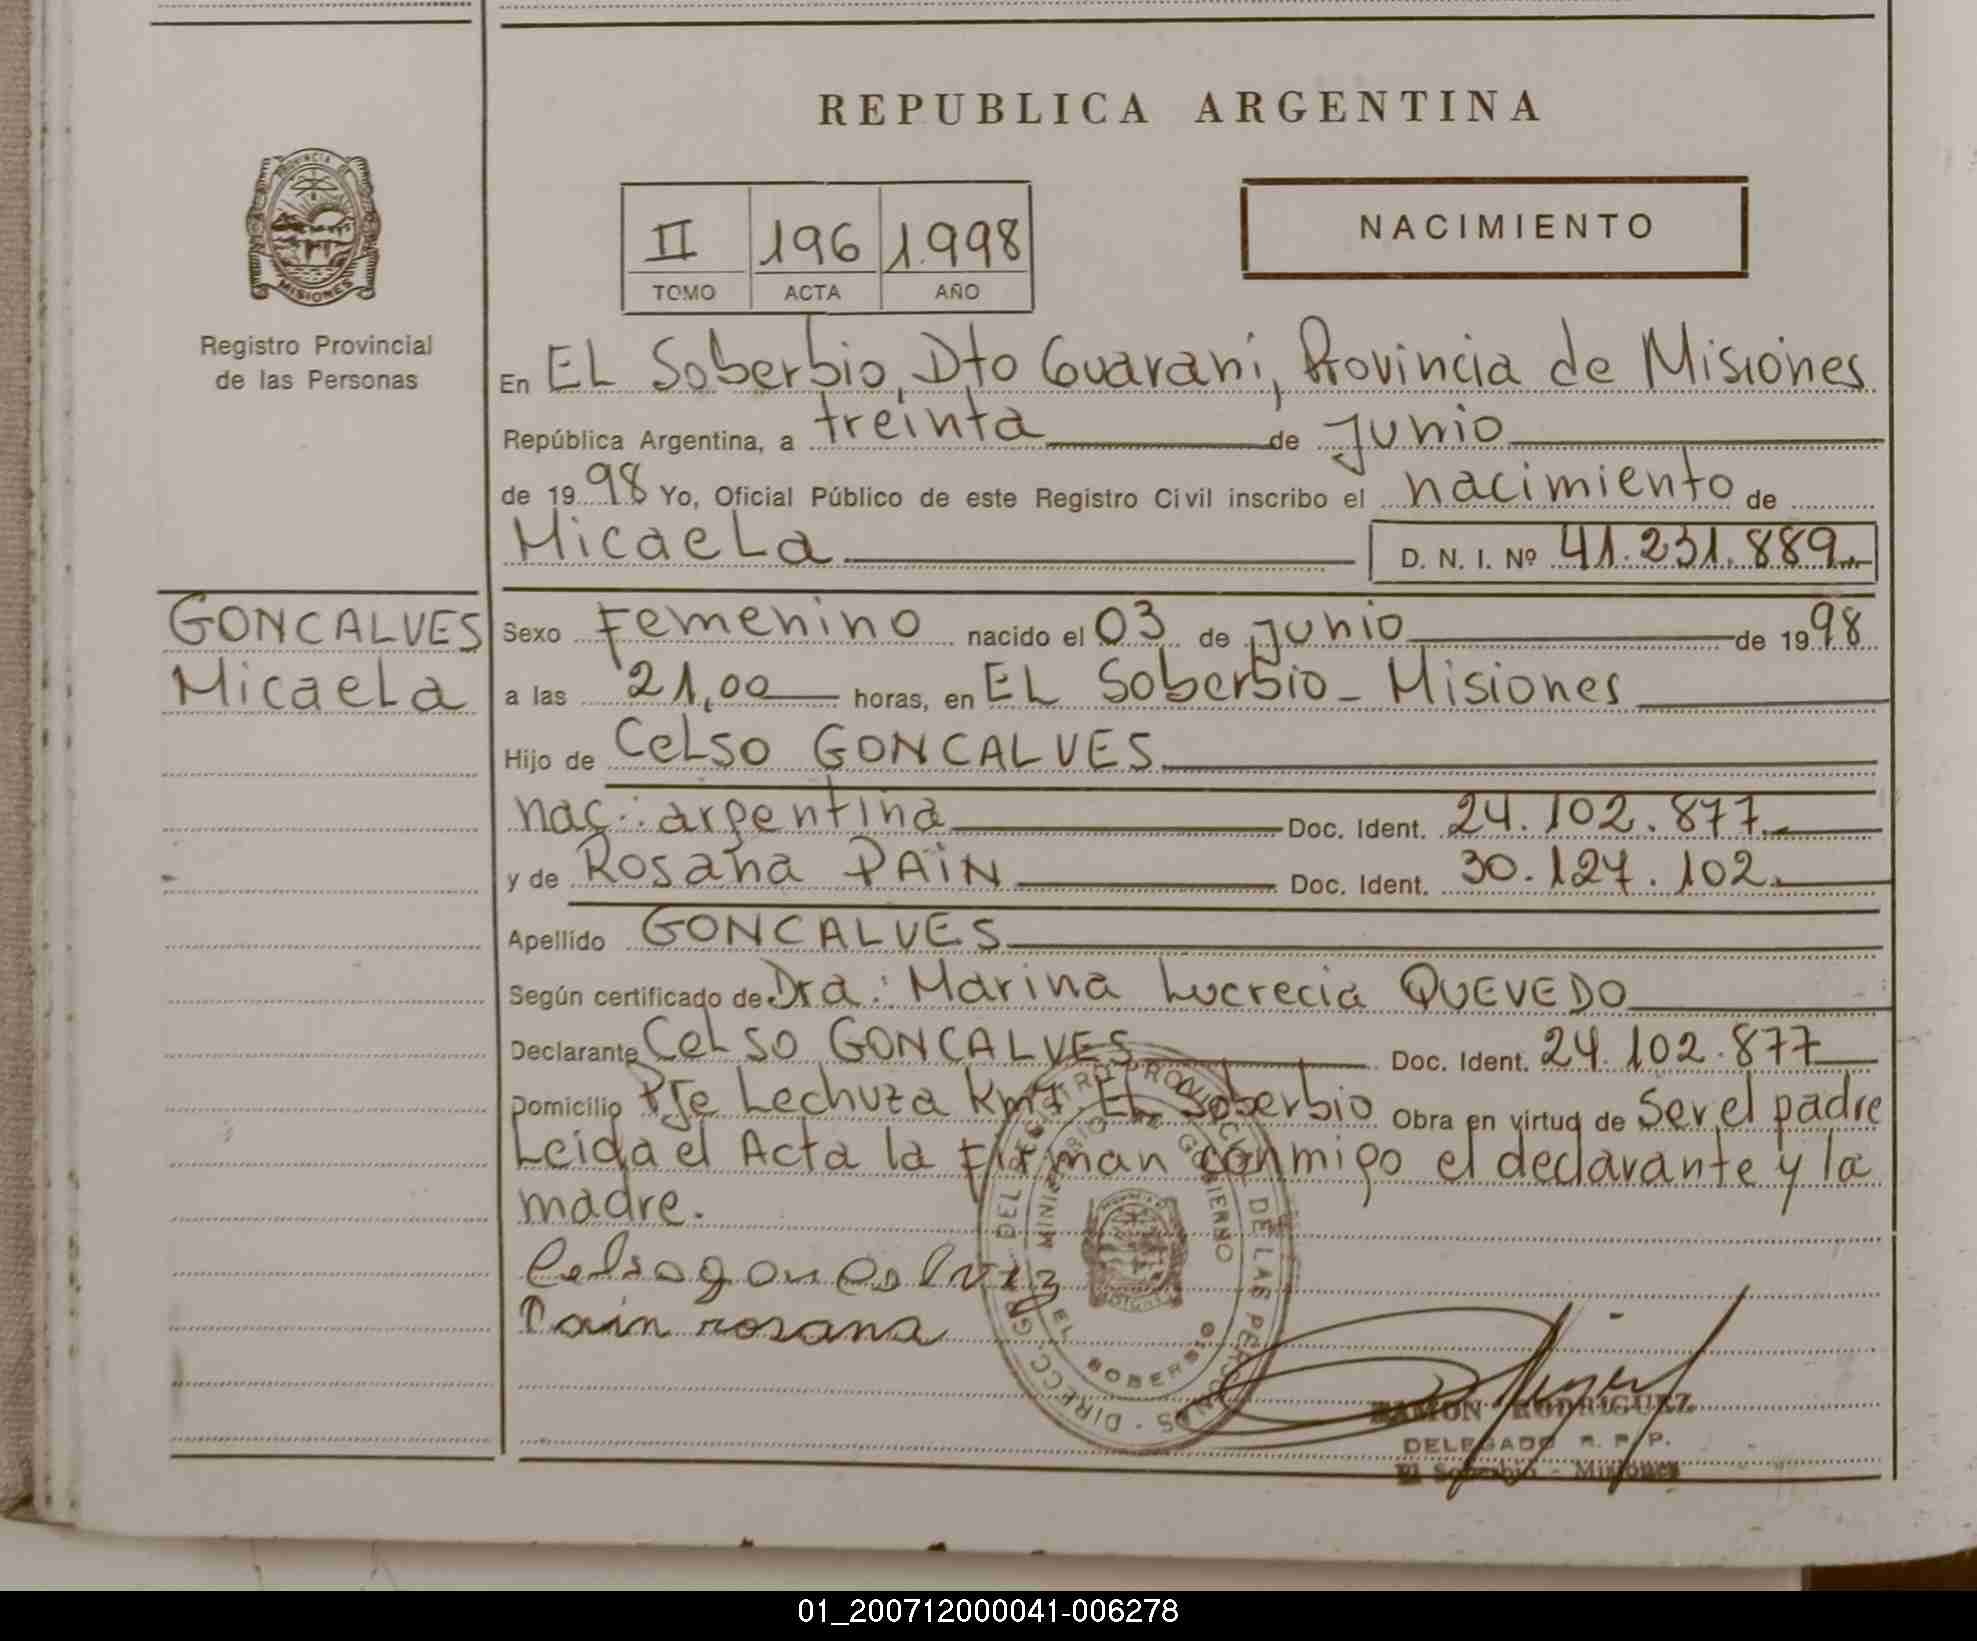 REPUBLICA ARGENTINA
PROVINCIA DE
MISIONES
Registro Provincial
de las Personas
II 196 1.998
TOMO ACTA AÑO
NACIMIENTO
En EL Soberbio, Dto Guarani, Provincia de Misiones
República Argentina, a treinta de Junio
de 1998 Yo, Oficial Público de este Registro Civil inscribo el nacimiento de
Micaela D. N. I. Nº 41.231.889
GONCALVES
Micaela
Sexo Femenino nacido el 03 de junio de 1998
a las 21,00 horas, en EL Soberbio - Misiones
Hijo de Celso GONCALVES
nac: argentina Doc. Ident. 24.102.877
y de Rosana PAIN Doc. Ident. 30.127.102
Apellido GONCALVES
Según certificado de Dra: Marina Lucrecia QUEVEDO
Declarante Celso GONCALVES Doc. Ident. 24.102.877
Domicilio Pje Lechuza EL Soberbio Obra en virtud de Ser el padre
Leida el Acta la firman conmigo el declarante y la
madre.
Pain rosana
DIRECC. GRAL. DEL REGISTRO PROVINCIAL DE LAS PERSONAS
MINISTERIO DE GOBIERNO
EL SOBERBIO
RAMON RODRIGUEZ
DELEGADO R. P. P.
El Soberbio - Misiones
01_200712000041-006278